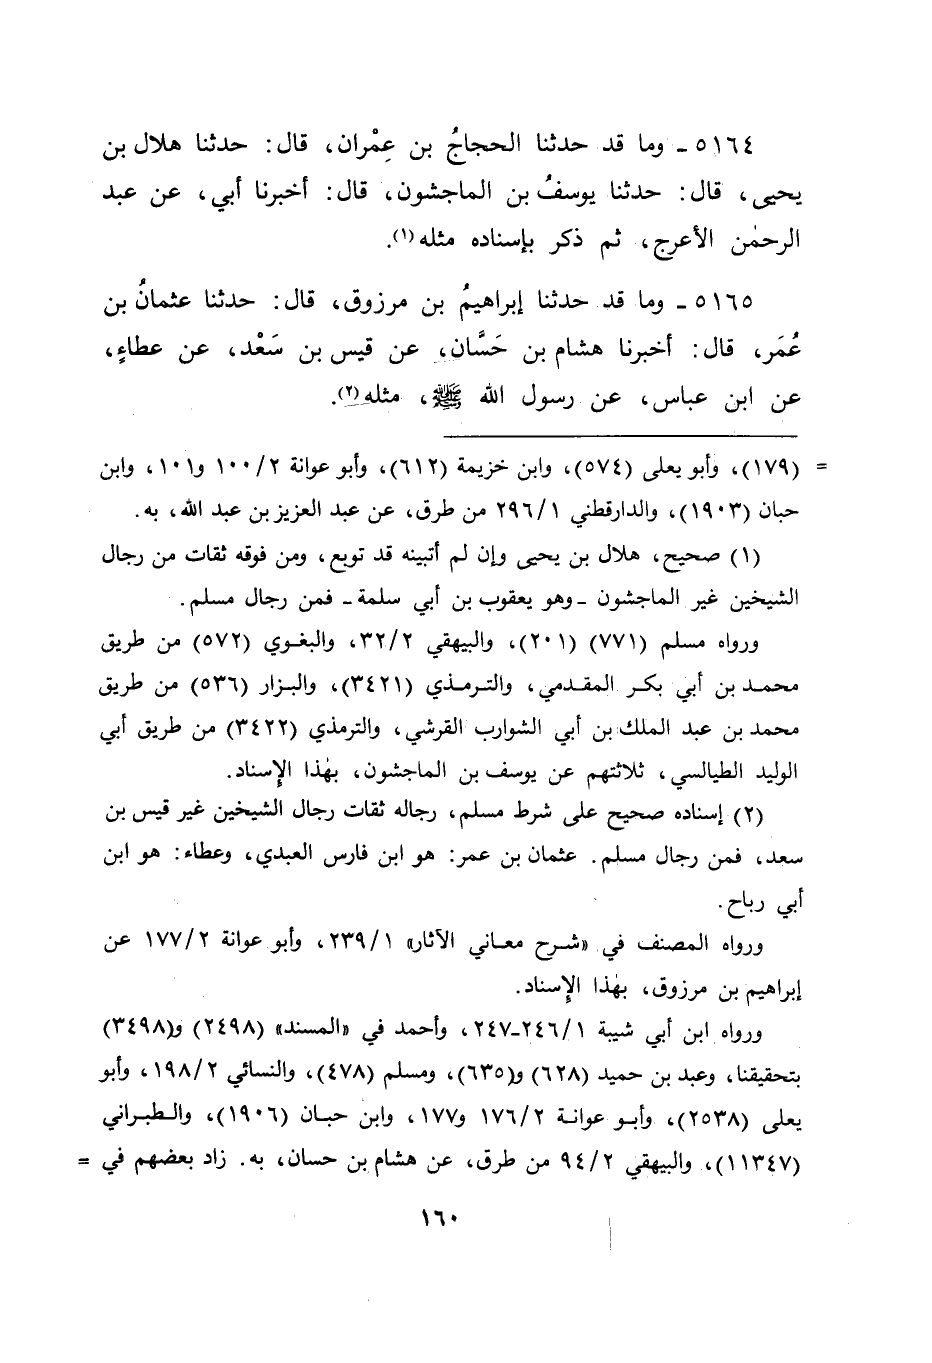 ٥١٦٤ - وما قد حدثنا الحجاجُ بن عِمْران، قال: حدثنا هلال بن
يحيى، قال: حدثنا يوسفُ بن الماجشون، قال: أخبرنا أبي، عن عبد
الرحمٰن الأعرج، ثم ذكر بإسناده مثله(١).
٥١٦٥ - وما قد حدثنا إبراهيمُ بن مرزوق، قال: حدثنا عثمانُ بن
عُمَر، قال: أخبرنا هشام بن حَسَّان، عن قيس بن سَعْد، عن عطاءٍ،
عن ابن عباس، عن رسول الله ﷺ، مثله(٢).
= (١٧٩)، وأبو يعلى (٥٧٤)، وابن خزيمة (٦١٢)، وأبو عوانة ١٠٠/٢ و١٠١، وابن
حبان (١٩٠٣)، والدارقطني ٢٩٦/١ من طرق، عن عبد العزيز بن عبد الله، به.
(١) صحيح، هلال بن يحيى وإن لم أتبينه قد توبع، ومن فوقه ثقات من رجال
الشيخين غير الماجشون - وهو يعقوب بن أبي سلمة - فمن رجال مسلم.
ورواه مسلم (٧٧١) (٢٠١)، والبيهقي ٣٢/٢، والبغوي (٥٧٢) من طريق
محمد بن أبي بكر المقدمي، والترمذي (٣٤٢١)، والبزار (٥٣٦) من طريق
محمد بن عبد الملك بن أبي الشوارب القرشي، والترمذي (٣٤٢٢) من طريق أبي
الوليد الطيالسي، ثلاثتهم عن يوسف بن الماجشون، بهٰذا الإِسناد.
(٢) إسناده صحيح على شرط مسلم، رجاله ثقات رجال الشيخين غير قيس بن
سعد، فمن رجال مسلم. عثمان بن عمر: هو ابن فارس العبدي، وعطاء: هو ابن
أبي رباح.
ورواه المصنف في «شرح معاني الآثار» ٢٣٩/١، وأبو عوانة ١٧٧/٢ عن
إبراهيم بن مرزوق، بهٰذا الإِسناد.
ورواه ابن أبي شيبة ٢٤٦/١-٢٤٧، وأحمد في «المسند» (٢٤٩٨) و(٣٤٩٨)
بتحقيقنا، وعبد بن حميد (٦٢٨) و(٦٣٥)، ومسلم (٤٧٨)، والنسائي ١٩٨/٢، وأبو
يعلى (٢٥٣٨)، وأبو عوانة ١٧٦/٢ و١٧٧، وابن حبان (١٩٠٦)، والطبراني
(١١٣٤٧)، والبيهقي ٩٤/٢ من طرق، عن هشام بن حسان، به. زاد بعضهم في =
١٦٠